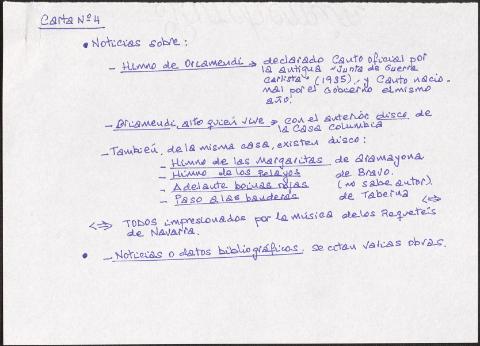 Carta Nº 4
• Noticias sobre:
– Himno de Oriamendi → declarado Canto oficial por
la antigua "Junta de Guerra
Carlista" (1935) y Canto nacio-
nal por el Gobierno el mismo
año.
– Oriamendi, alto quien vive → con el anterior disco de
la Casa Columbia
– También, de la misma casa, existen disco:
– Himno de las Margaritas de Aramayona
– Himno de los Pelayos de Bravo.
– Adelante boinas rojas (no sabe autor)
– Paso a las banderas de Taberna
<=> TODOS impresionados por la música de los Requetés <=>
de Navarra.
• – Noticias o datos bibliográficos, se citan varias obras.